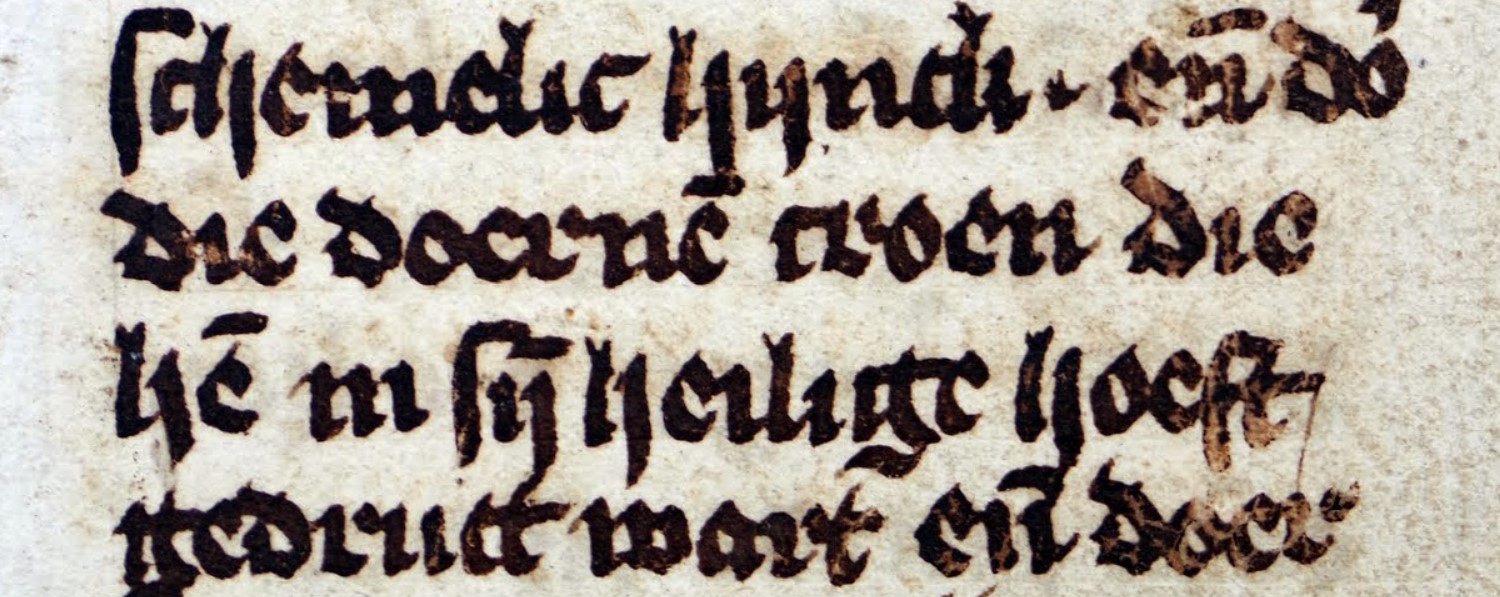 schemelic hijnck · en̄ do'
die doernē croen die
hē in sij̄ heilige hoeft
gedruct wart en̄ doer